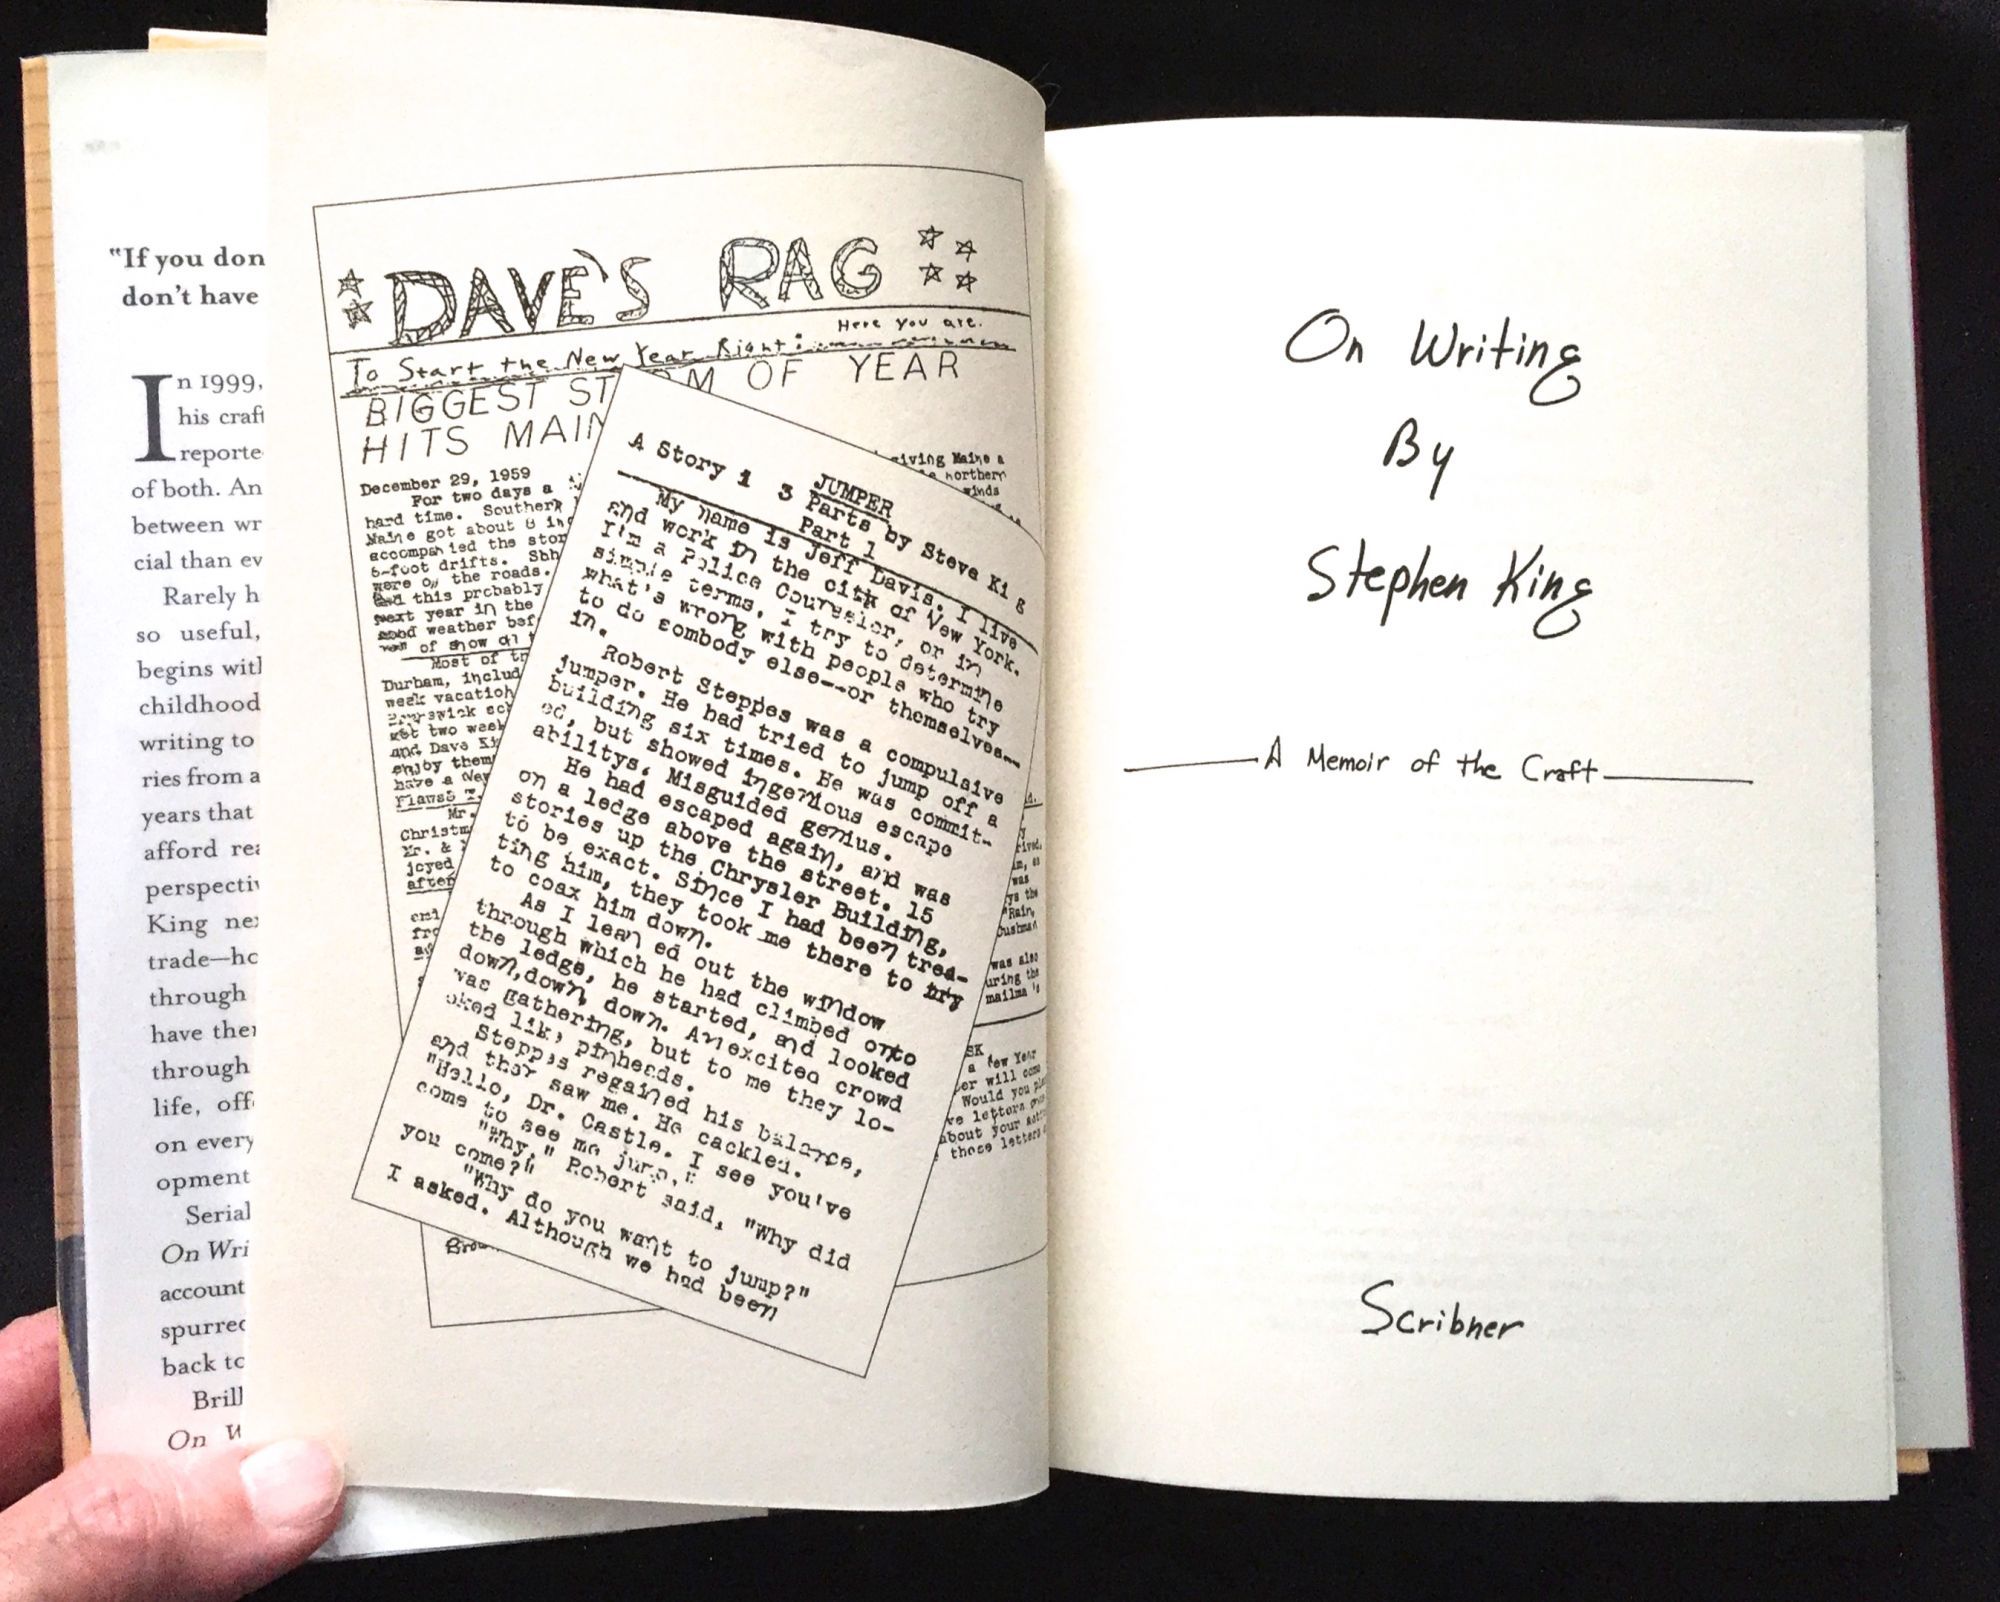 "If you don
don't have
In 1999,
his craft
reporte
of both. An
between wr
cial than ev
Rarely h
so useful,
begins with
childhood
writing to
ries from a
years that
afford rea
perspectiv
King nex
trade—ho
through
have ther
through
life, off
on every
opment
Serial
On Wri
account
spurred
back to
Brill
On W
DAVE'S RAG
Here you are.
To Start the New Year Right:
BIGGEST ST RM OF YEAR
HITS MAIN
December 29, 1959
For two days a
hard time. Southern
Maine got about 8 inc
accompanied the stor
6-foot drifts.
were on the roads.
and this probably
next year in the
good weather bef
of snow on t
Most of th
Durham, includ
week vacation
get two week
and Dave Ki
enjoy them
have a New
Mr.
Christm
Mr. &
joyed
after
giving Maine a
northern
winds
was
ys the
"Rain,
Cushman
was also
uring the
mailma 's
SK
a New Year
er will come
Would you
letters
about your
those letters
A Story i
JUMPER
3 Parts by Steve Ki g
Part 1
My name is Jeff Davis. I live
and work in the city of New York.
I'm a Police Counselor, or in
simple terms. I try to determine
what's wrong with people who try
to do sombody else--or themselves--
in.
Robert Steppes was a compulsive
jumper. He had tried to jump off a
building six times. He was commit-
ed, but showed ingenious escape
abilitys. Misguided genius.
He had escaped again, and was
on a ledge above the street. 15
stories up the Chrysler Building,
to be exact. Since I had been trea-
ting him, they took me there to try
to coax him down.
As I lean ed out the window
through which he had climbed onto
the ledge, he started, and looked
down,down, down. An excited crowd
was gathering, but to me they lo-
oked like pinheads.
Steppes regained his balance,
and then saw me. He cackled.
"Hello, Dr. Castle. I see you've
come to see me jump."
"Why," Robert said, "Why did
you come?"
"Why do you want to jump?"
I asked. Although we had been
On Writing
By
Stephen King
A Memoir of the Craft
Scribner